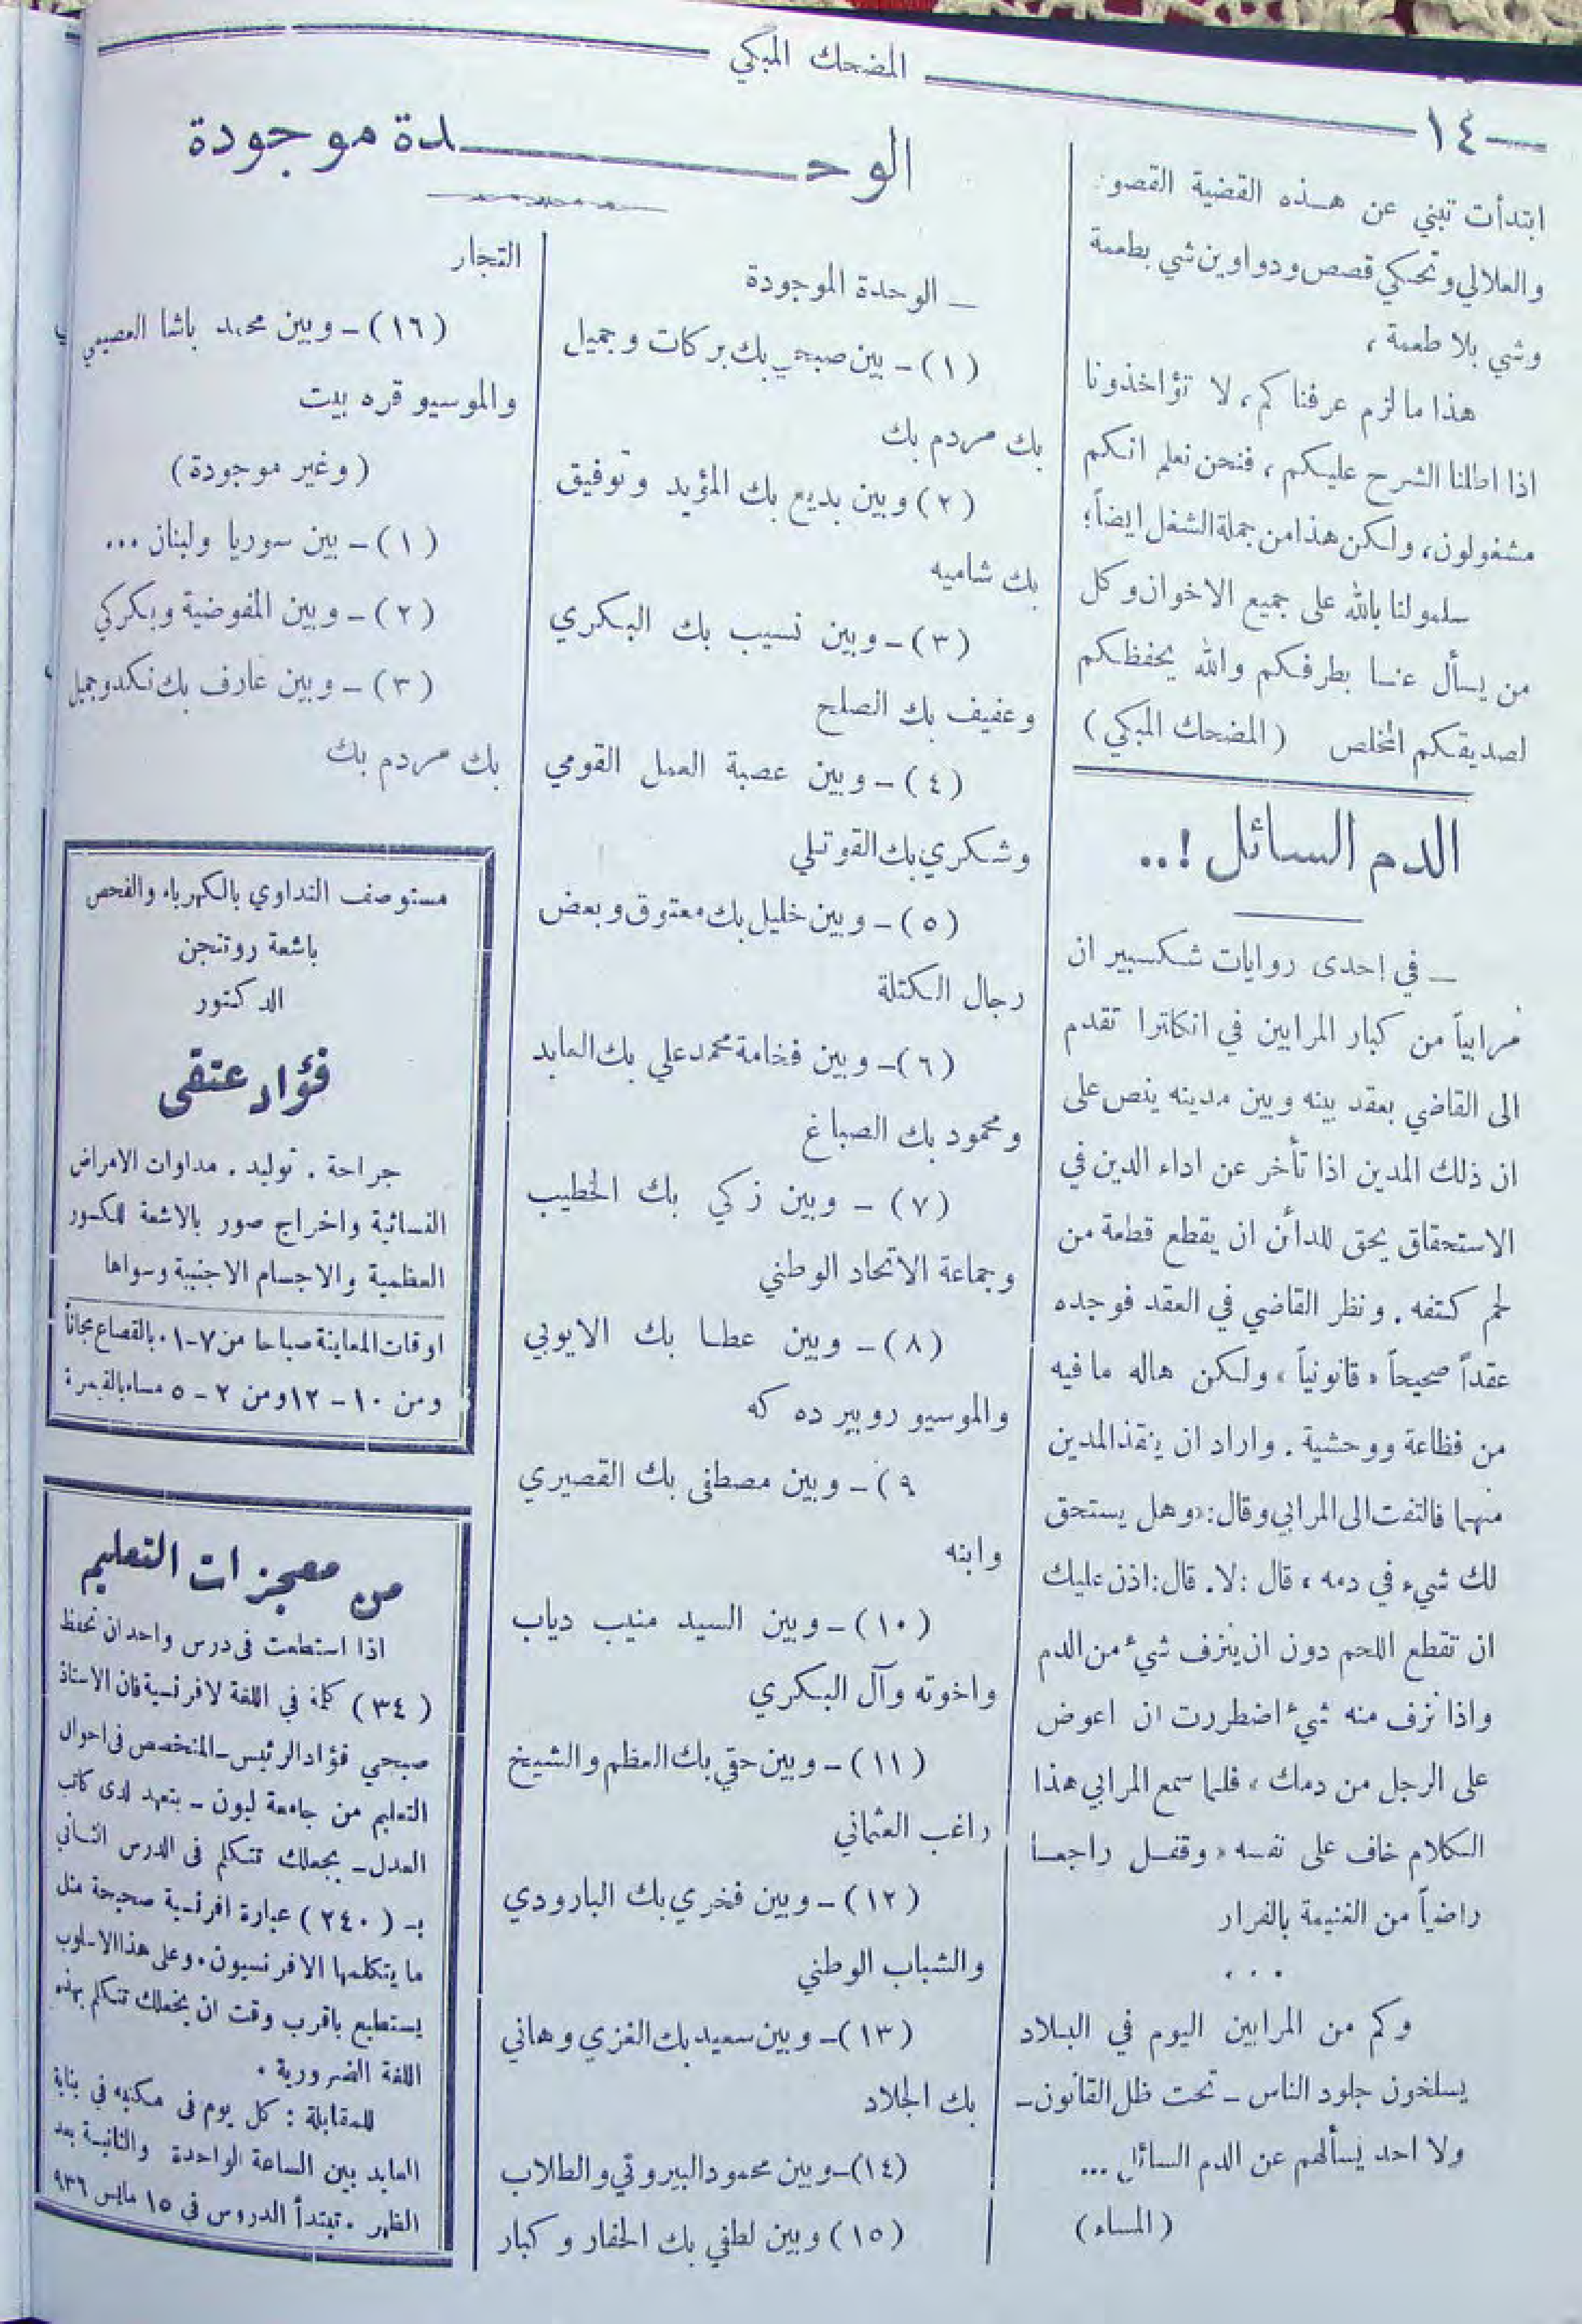 المضحك المبكي
— ١٤ —
ابتدأت تبني عن هذه القضية القصور
والعلالي وتحكي قصص ودواوين شي بطعمة
وشي بلا طعمة ،
هذا ما لزم عرفناكم ، لا تؤاخذونا
اذا اطلنا الشرح عليكم ، فنحن نعلم انكم
مشغولون ، ولكن هذا من جملة الشغل ايضاً ؛
سلمو لنا بالله على جميع الاخوان وكل
من يسأل عنا بطرفكم والله يحفظكم
لصديقكم المخلص ( المضحك المبكي )
الدم السائل ! ..
— في احدى روايات شكسبير ان
مرابياً من كبار المرابين في انكلترا تقدم
الى القاضي بعقد بينه وبين مدينه ينص على
ان ذلك المدين اذا تأخر عن اداء الدين في
الاستحقاق يحق للدائن ان يقطع قطعة من
لحم كتفه . ونظر القاضي في العقد فوجده
عقداً صحيحاً « قانونياً » ولكن هاله ما فيه
من فظاعة ووحشية . واراد ان ينقذ المدين
منهما فالتفت الى المرابي وقال : « وهل يستحق
لك شيء في دمه ، قال : لا . قال : اذن عليك
ان تقطع اللحم دون ان ينزف شيء من الدم
واذا نزف منه شيء اضطررت ان اعوض
على الرجل من دمك ، فلما سمع المرابي هذا
الكلام خاف على نفسه « وقفل راجعا
راضياً من الغنيمة بالفرار
. . .
وكم من المرابين اليوم في البلاد
يسلخون جلود الناس - تحت ظل القانون -
ولا احد يسألهم عن الدم السائل ...
( المساء )
الوحــــــــدة موجودة
— الوحدة الموجودة
(١) - بين صبحي بك بركات وجميل
بك مردم بك
(٢) وبين بديع بك المؤيد وتوفيق
بك شاميه
(٣) - وبين نسيب بك البكري
وعفيف بك الصلح
(٤) - وبين عصبة العمل القومي
وشكري بك القوتلي
(٥) - وبين خليل بك معتوق وبعض
رجال الكتلة
(٦) - وبين فخامة محمد علي بك العابد
ومحمود بك الصباغ
(٧) - وبين زكي بك الخطيب
وجماعة الاتحاد الوطني
(٨) - وبين عطا بك الايوبي
والموسيو روبير ده كه
٩) - وبين مصطفى بك القصيري
وابنه
(١٠) - وبين السيد منيب دياب
واخوته وآل البكري
(١١) - وبين حقي بك العظم والشيخ
راغب العثماني
(١٢) - وبين فخري بك البارودي
والشباب الوطني
(١٣) - وبين سعيد بك الغزي وهاني
بك الجلاد
(١٤) - وبين محمود البيروتي والطلاب
(١٥) وبين لطفي بك الحفار وكبار
التجار
(١٦) - وبين محمد باشا العصيمي
والموسيو قره بيت
( وغير موجودة )
(١) - بين سوريا ولبنان ...
(٢) - وبين المفوضية وبكركي
(٣) - وبين عارف بك نكد وجميل
بك مردم بك
مستوصف التداوي بالكهرباء والفحص
باشعة روتنجن
الدكتور
فؤاد عتقى
جراحة . توليد . مداوات الامراض
النسائية واخراج صور بالاشعة للكسور
العظمية والاجسام الاجنبية وسواها
اوقات المعاينة صباحا من ٧-١٠ بالقصاع مجاناً
ومن ١٠ - ١٢ ومن ٢ - ٥ مساء
من معجزات التعليم
اذا استطعت في درس واحد ان تحفظ
(٣٤) كلمة في اللغة لافرنسية فان الاستاذ
صبحي فؤاد الرئيس - المتخصص في احوال
التعليم من جامعة ليون - بتعهد لدى كاتب
العدل - يجعلك تتكلم في الدرس الثاني
بـ (٢٤٠) عبارة افرنسية صحيحة مثل
ما يتكلمها الافرنسيون . وعلى هذا الاسلوب
يستطيع باقرب وقت ان يجعلك تتكلم بهذه
اللغة الضرورية .
للمقابلة : كل يوم في مكتبه في بناية
العابد بين الساعة الواحدة والثانية بعد
الظهر . تبتدأ الدروس في ١٥ مايس ٩٣٦